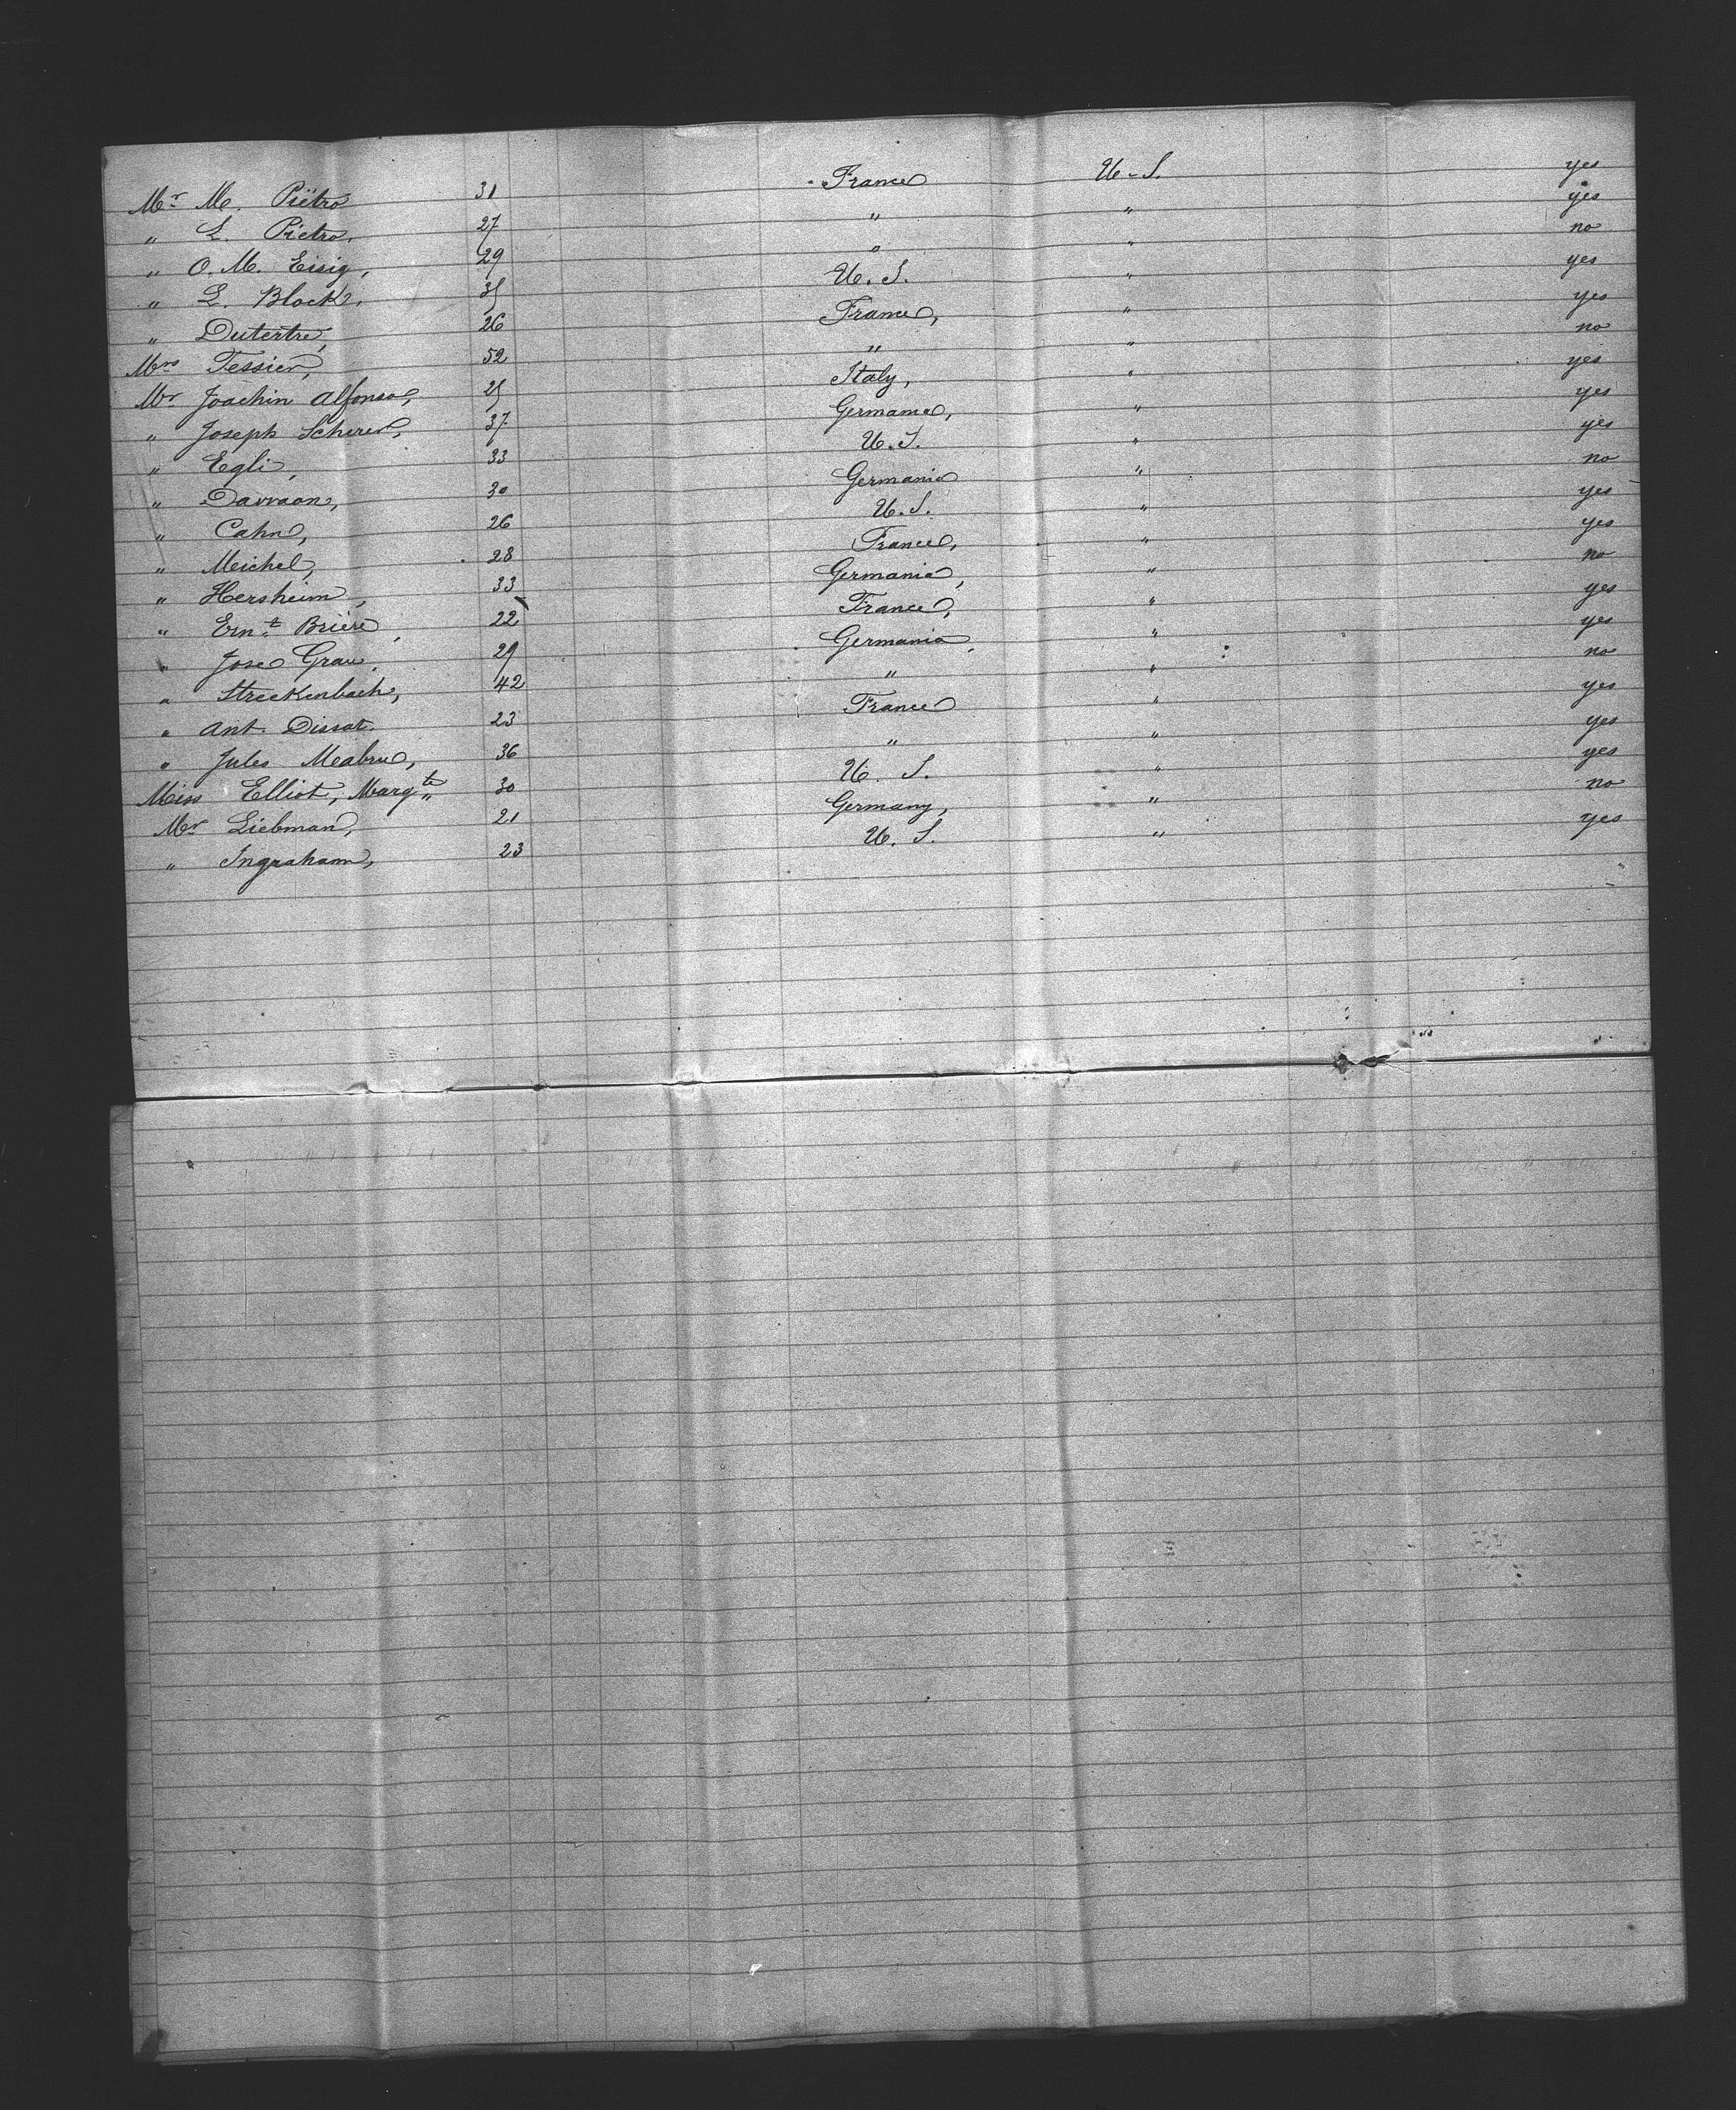 Mr M. Piëtro 31 France U. S. yes
" L. Pietro, 27 " " yes
" O. M. Eisig, 29 " " no
" L. Block, 35 U. S. " yes
" Dutertre, 26 France, " yes
Mrs Tessier, 52 " " no
Mr Joachin Alfonso, 25 Italy, " yes
" Joseph Scherer, 37 Germania, " yes
" Egli, 33 U. S. " yes
" Davraon, 30 Germania " no
" Cahn, 26 U. S. " yes
" Meichel, 28 France, " yes
" Hersheim, 33 Germania, " no
" Ernt Brière, 22 France, " yes
" Jose Grau, 29 Germania, " yes
" Streckenbach, 42 " " no
" Ant. Dissat. 23 France " yes
" Jules Meabru, 36 " " yes
Miss Elliot, Margte 30 U. S. " yes
Mr Liebman, 21 Germany, " no
" Ingraham, 23 U. S. " yes